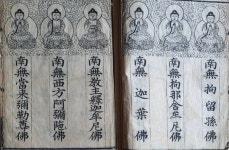 南無拘留孫佛
南無拘那含牟尼佛
南無迦葉佛
南無教主釋迦牟尼佛
南無西方阿彌陀佛
南無當來彌勒尊佛